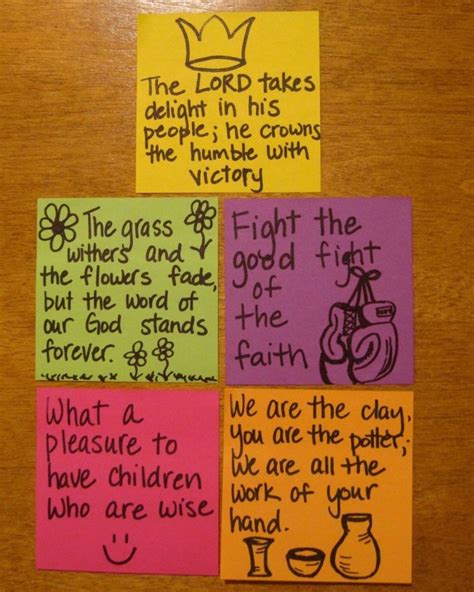 The LORD takes
delight in his
people; he crowns
the humble with
victory
The grass
withers and
the flowers fade,
but the word of
our God stands
forever.
Fight the
good fight
of
the
faith
What a
pleasure to
have children
who are wise
We are the clay,
you are the potter;
We are all the
work of your
hand.